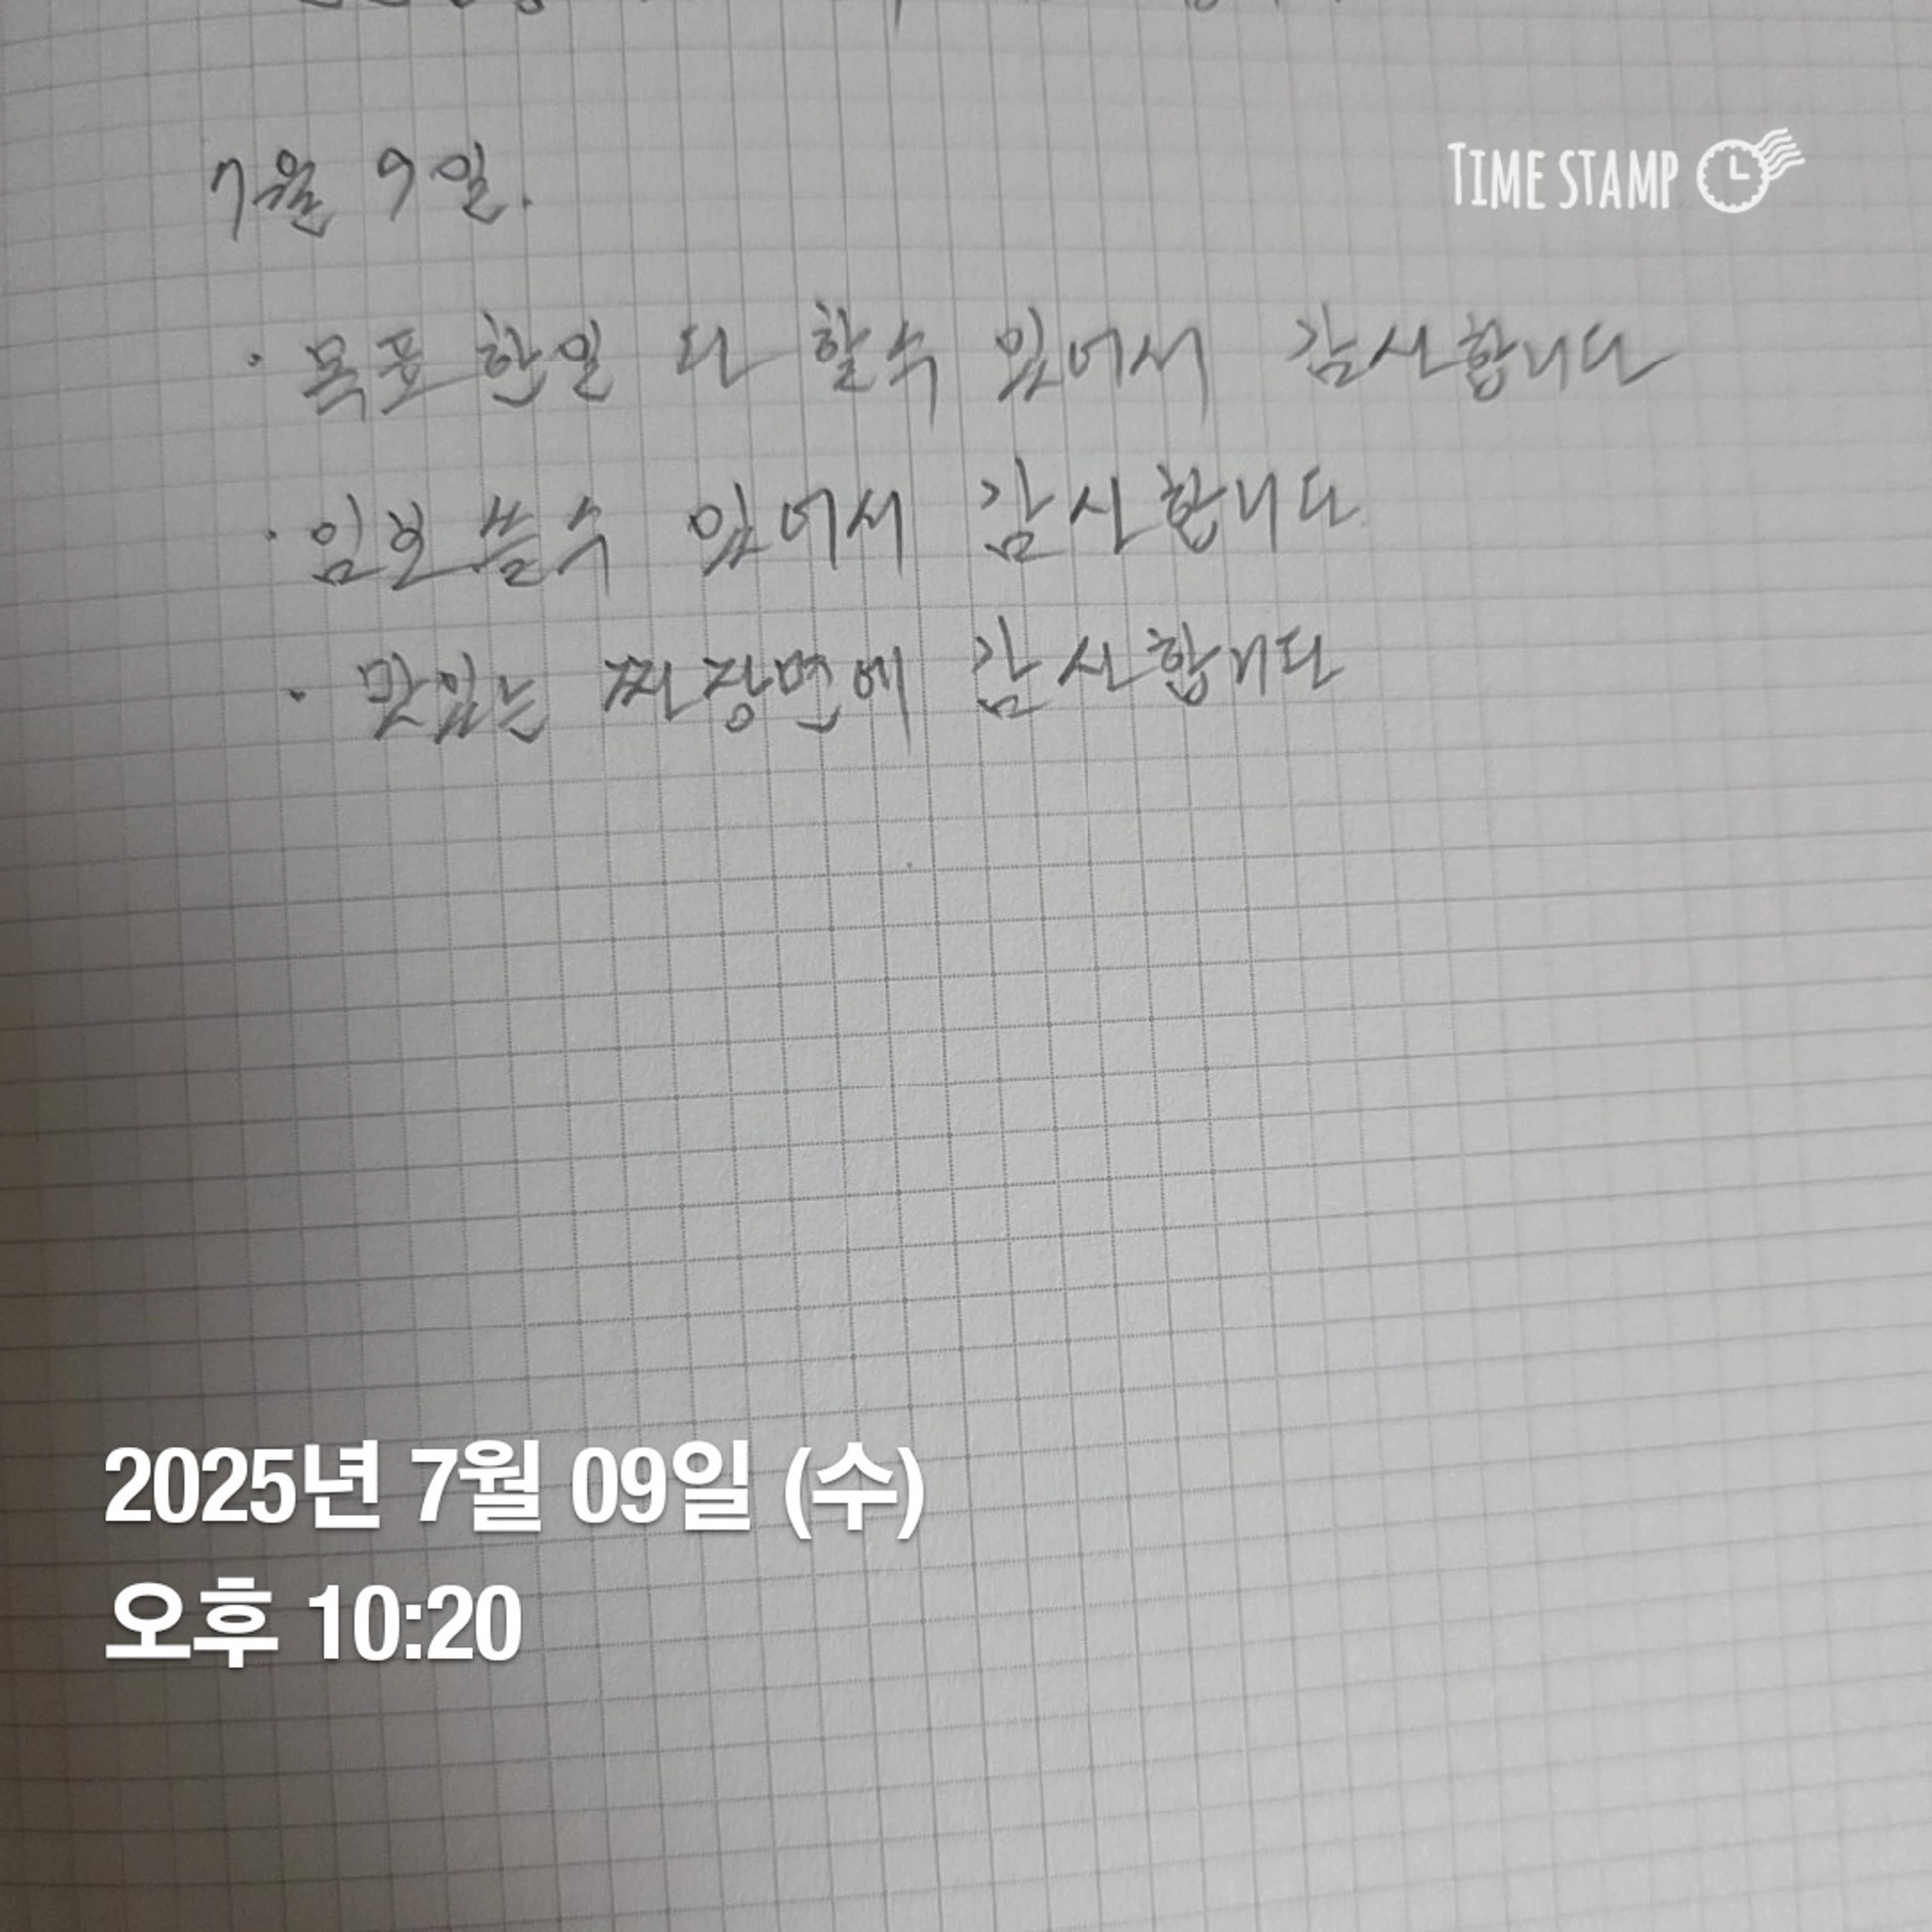 7월 9일.
TIME STAMP
· 목표 한일 다 할수 있어서 감사합니다
· 일찍 쓸수 있어서 감사합니다
· 맛있는 짜장면에 감사합니다
2025년 7월 09일 (수)
오후 10:20